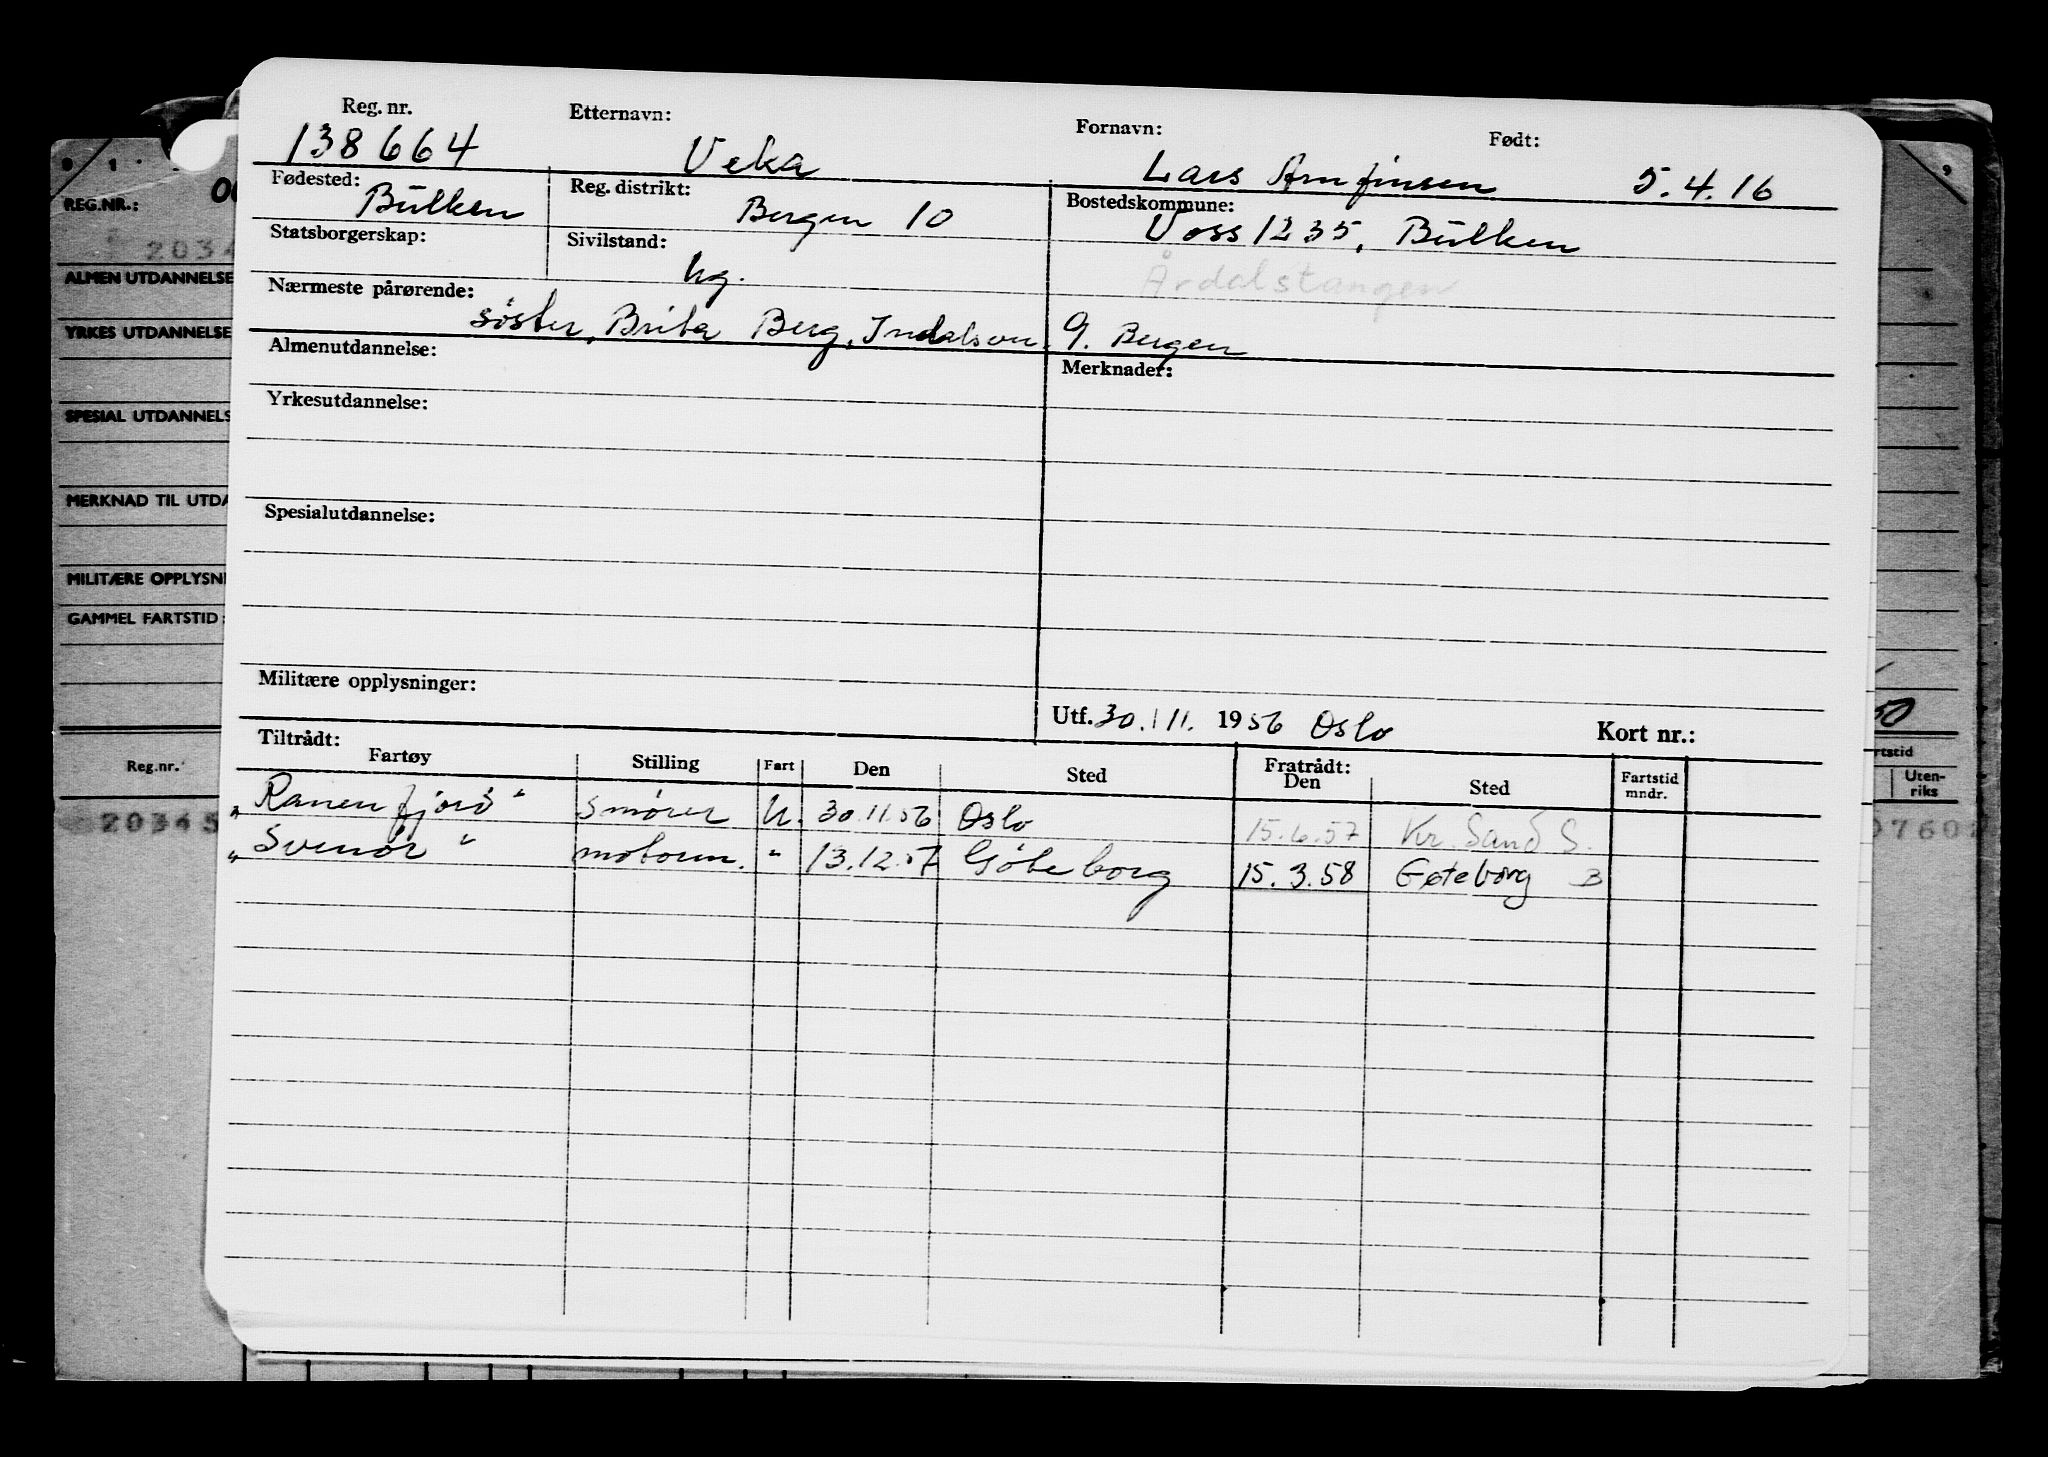 Reg. nr. Etternavn: Fornavn: Født:
138664 Veka Lars Arnfinsen 5.4.16
Fødested: Bulken Reg. distrikt: Bergen 10 Bostedskommune: Voss 1235, Bulken
Statsborgerskap: Sivilstand: ug. Årdalstangen
Nærmeste pårørende: søster, Brita Berg, Indalsvn. 9. Bergen
Almenutdannelse: Merknader:
Yrkesutdannelse:
Spesialutdannelse:
Militære opplysninger:
Utf. 30. 11. 1956 Oslo Kort nr.:
Tiltrådt: Fratrådt:
Fartøy Stilling Fart Den Sted Den Sted Fartstid mndr.
"Ranenfjord" smører U. 30.11.56 Oslo 15.6.57 Kr. Sand S.
"Svenør" motorm. " 13.12.57 Göteborg 15.3.58 Gøteborg B
REG.NR.:
2034
ALMEN UTDANNELSE
YRKES UTDANNELSE
SPESIAL UTDANNELS
MERKNAD TIL UTDA
MILITÆRE OPPLYSNI
GAMMEL FARTSTID:
Reg.nr.
20345
rtstid
Uten-
riks
0760